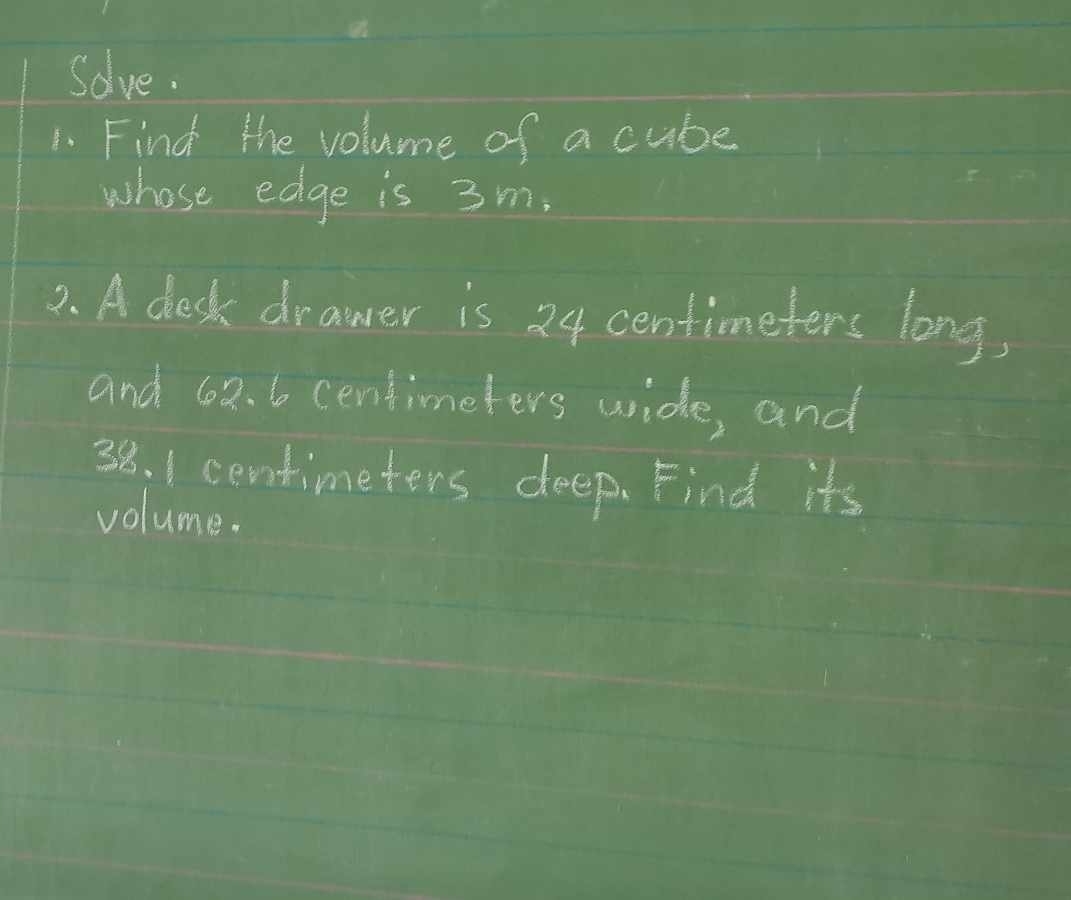 Solve.
1. Find the volume of a cube
whose edge is 3m.
2. A desk drawer is 24 centimeters long,
and 62.6 centimeters wide, and
38.1 centimeters deep. Find its
volume.